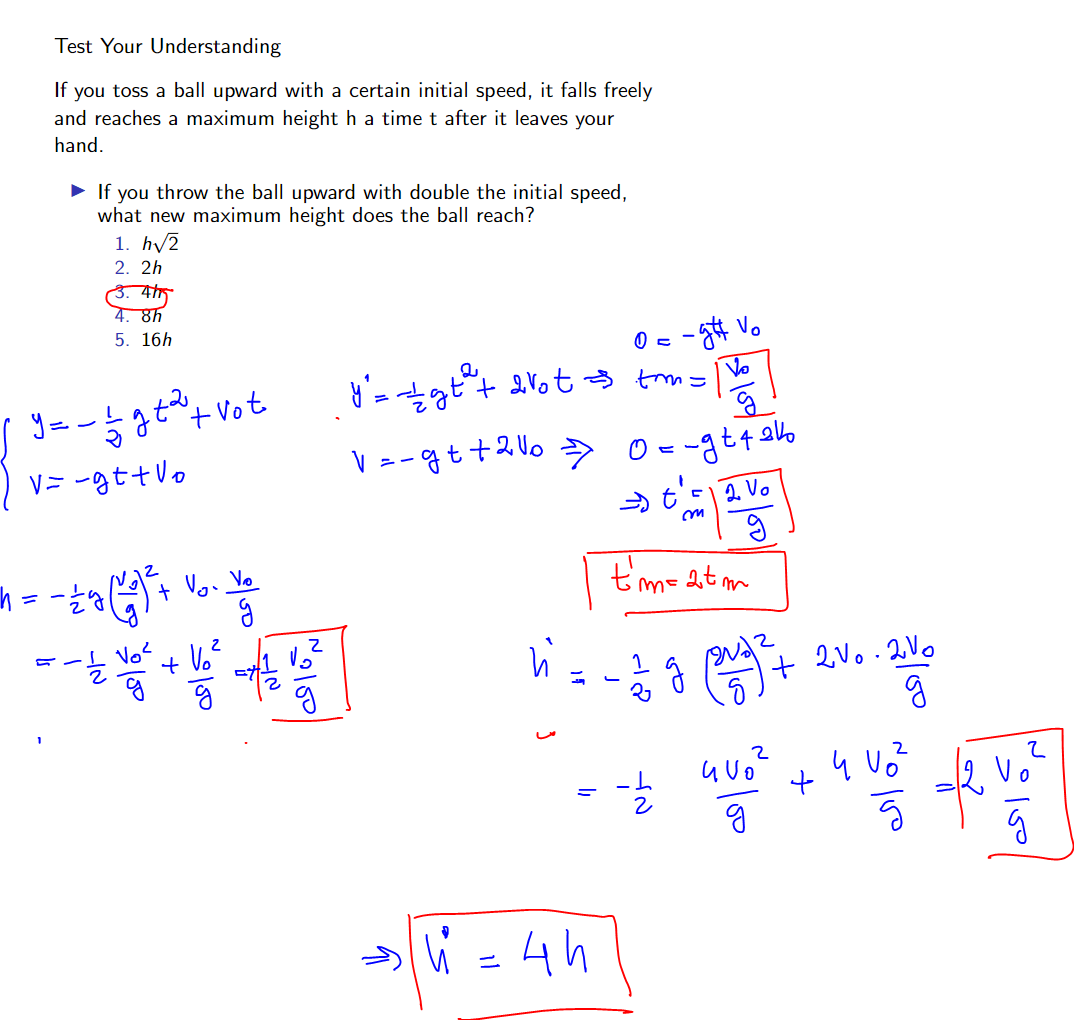 Test Your Understanding
If you toss a ball upward with a certain initial speed, it falls freely
and reaches a maximum height h a time t after it leaves your
hand.
▶ If you throw the ball upward with double the initial speed,
what new maximum height does the ball reach?
1. h√2
2. 2h
3. 4h
4. 8h
5. 16h
0 = -gt+ V₀
y = -½ gt² + V₀t
y' = -½ gt² + 2V₀t ⇒ tm = V₀/g
V = -gt + V₀
V = -gt + 2V₀ ⇒ 0 = -gt + 2V₀
⇒ t'm = 2V₀/g
t'm = 2tm
h = -½ g (V₀/g)² + V₀ · V₀/g
= -½ V₀²/g + V₀²/g = +½ V₀²/g
h' = -½ g (2V₀/g)² + 2V₀ · 2V₀/g
= -½ 4V₀²/g + 4V₀²/g = 2 V₀²/g
⇒ h' = 4h